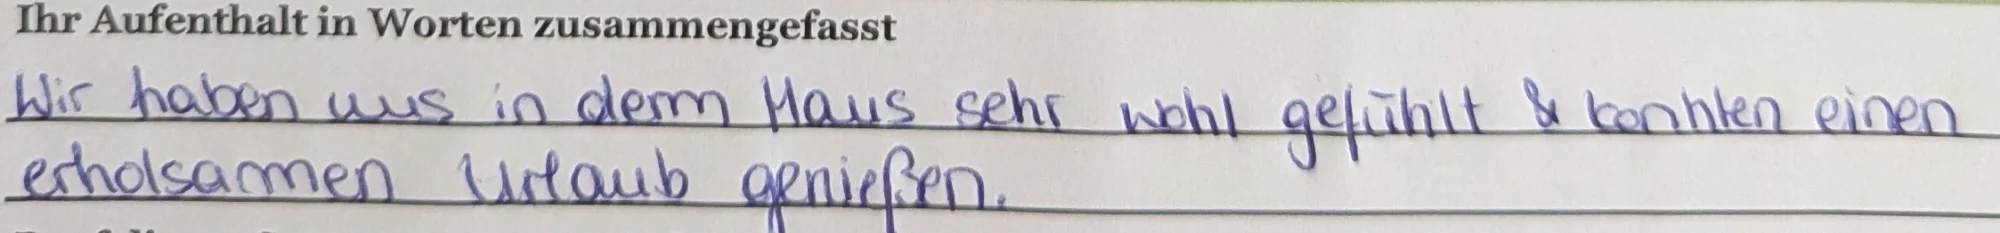 Ihr Aufenthalt in Worten zusammengefasst
Wir haben uns in dem Haus sehr wohl gefühlt & konnten einen
erholsamen Urlaub genießen.